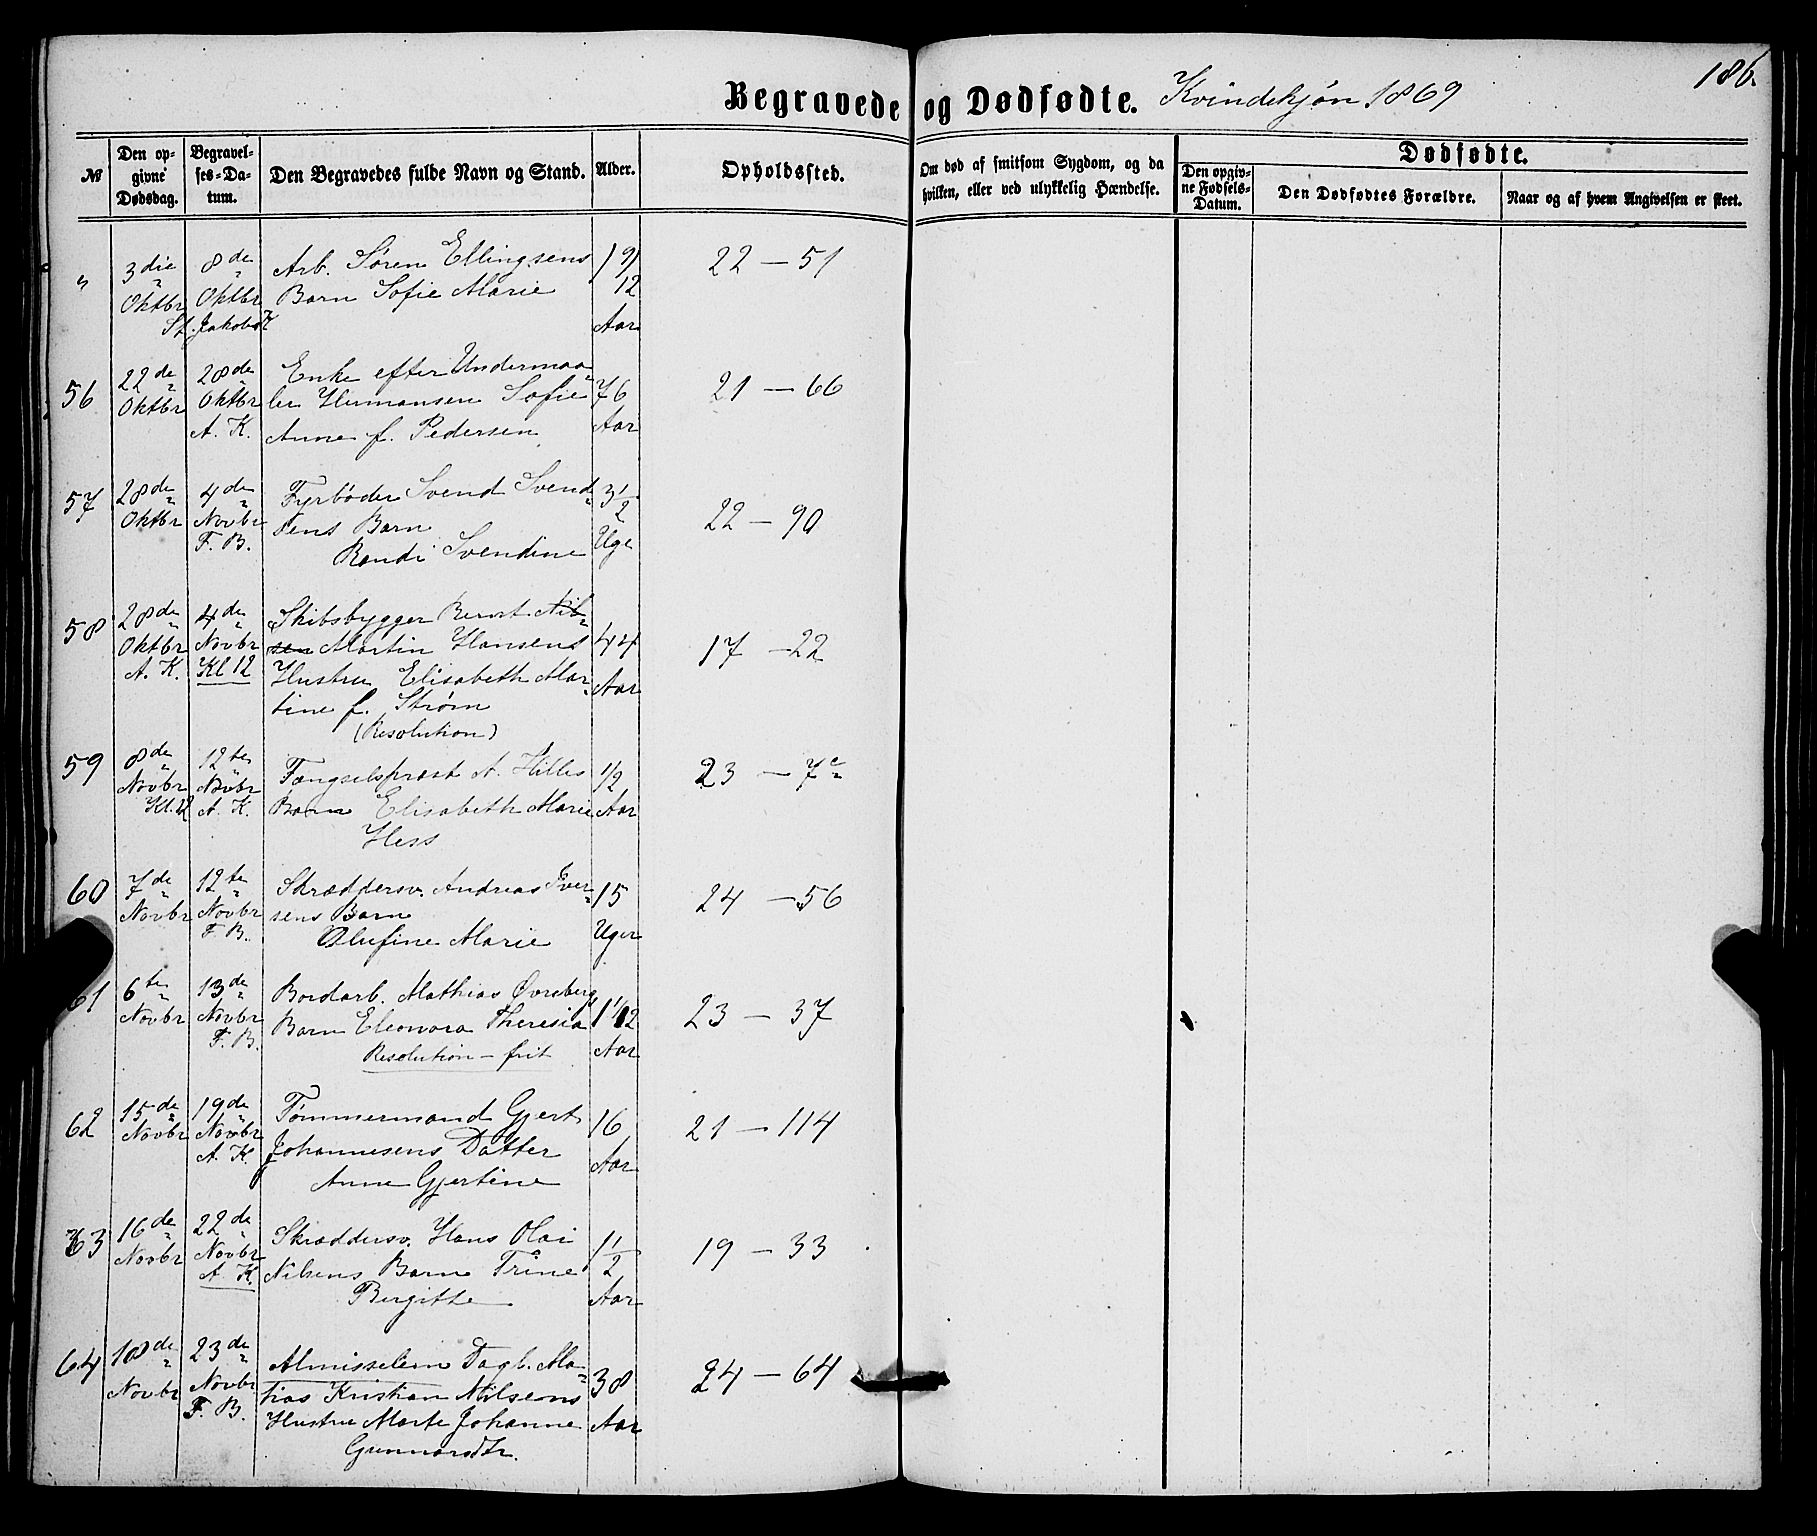 186.
Begravede og Dødfødte. Kvindekjøn 1869
№ | Den opgivne Dødsdag. | Begravelses-Datum. | Den Begravedes fulde Navn og Stand. | Alder. | Opholdssted. | Om død af smitsom Sygdom, og da hvilken, eller ved ulykkelig Hændelse. | Dødfødte.
Den opgivne Fødsels-Datum. | Den Dødfødtes Forældre. | Naar og af hvem Angivelsen er skeet.
" 3die 8de Arb. Søren Ellingsens 1 9/12 22 – 51
Oktbr Oktbr Barn Sofie Marie
St. Jakobs K Aar
56 22de 28de Enke efter Undermaa- 76 21 – 66
Oktbr Oktbr ler Hermansen Sofie
A. K. Anne f. Pedersen Aar
57 28de 4de Fyrbøder Svend Svend- 3 1/2 22 – 90
Oktbr Novbr sens Barn
F. B. Randi Svendine Uge
58 28de 4de Skibsbygger Bernt Nil- 44 17 – 22
Oktbr Novbr sen Martin Hansens
A. K. Kl 12 Hustru Elisabeth Mar- Aar
tine f. Strøm
(Resolution)
59 8de 12te Fængselsprest A. Hilles 1/2 23 – 7c
Novbr Novbr Barn Elisabeth Marie Aar
Kl. 12 A. K. Hess
60 7de 12te Skræddersv. Andreas Iver- 15 24 – 56
Novbr Novbr sens Barn
F. B. Olufine Marie Uger
61 6te 13de Bordarb. Mathias Øvreberg 1 1/12 23 – 37
Novbr Novbr Barn Eleonora Theresia
F. B. Resolution – frit Aar
62 15de 19de Tømmermand Gjert 16 21 – 114
Novbr Novbr Johannesens Datter
A. K. Anne Gjertine Aar
63 16de 22de Skræddersv. Hans Olai 1 1/2 19 – 33
Novbr Novbr Nilsens Barn Trine
A. K. Bergitte Aar
64 18de 23de Almisselem Dagl. Ma- 38 24 – 64
Novbr Novbr tias Kristian Nilsens
F. B. Hustru Marte Johanne Aar
Gunnarsdtr.